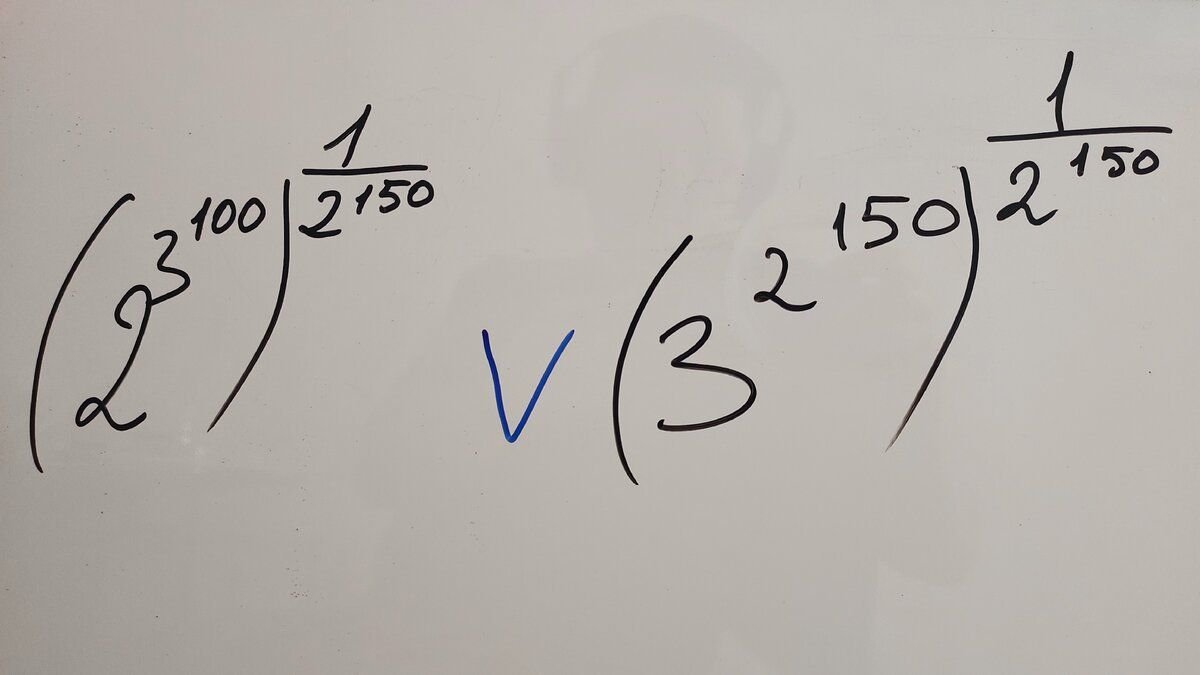 (2^3^100)^(1/2^150) V (3^2^150)^(1/2^150)